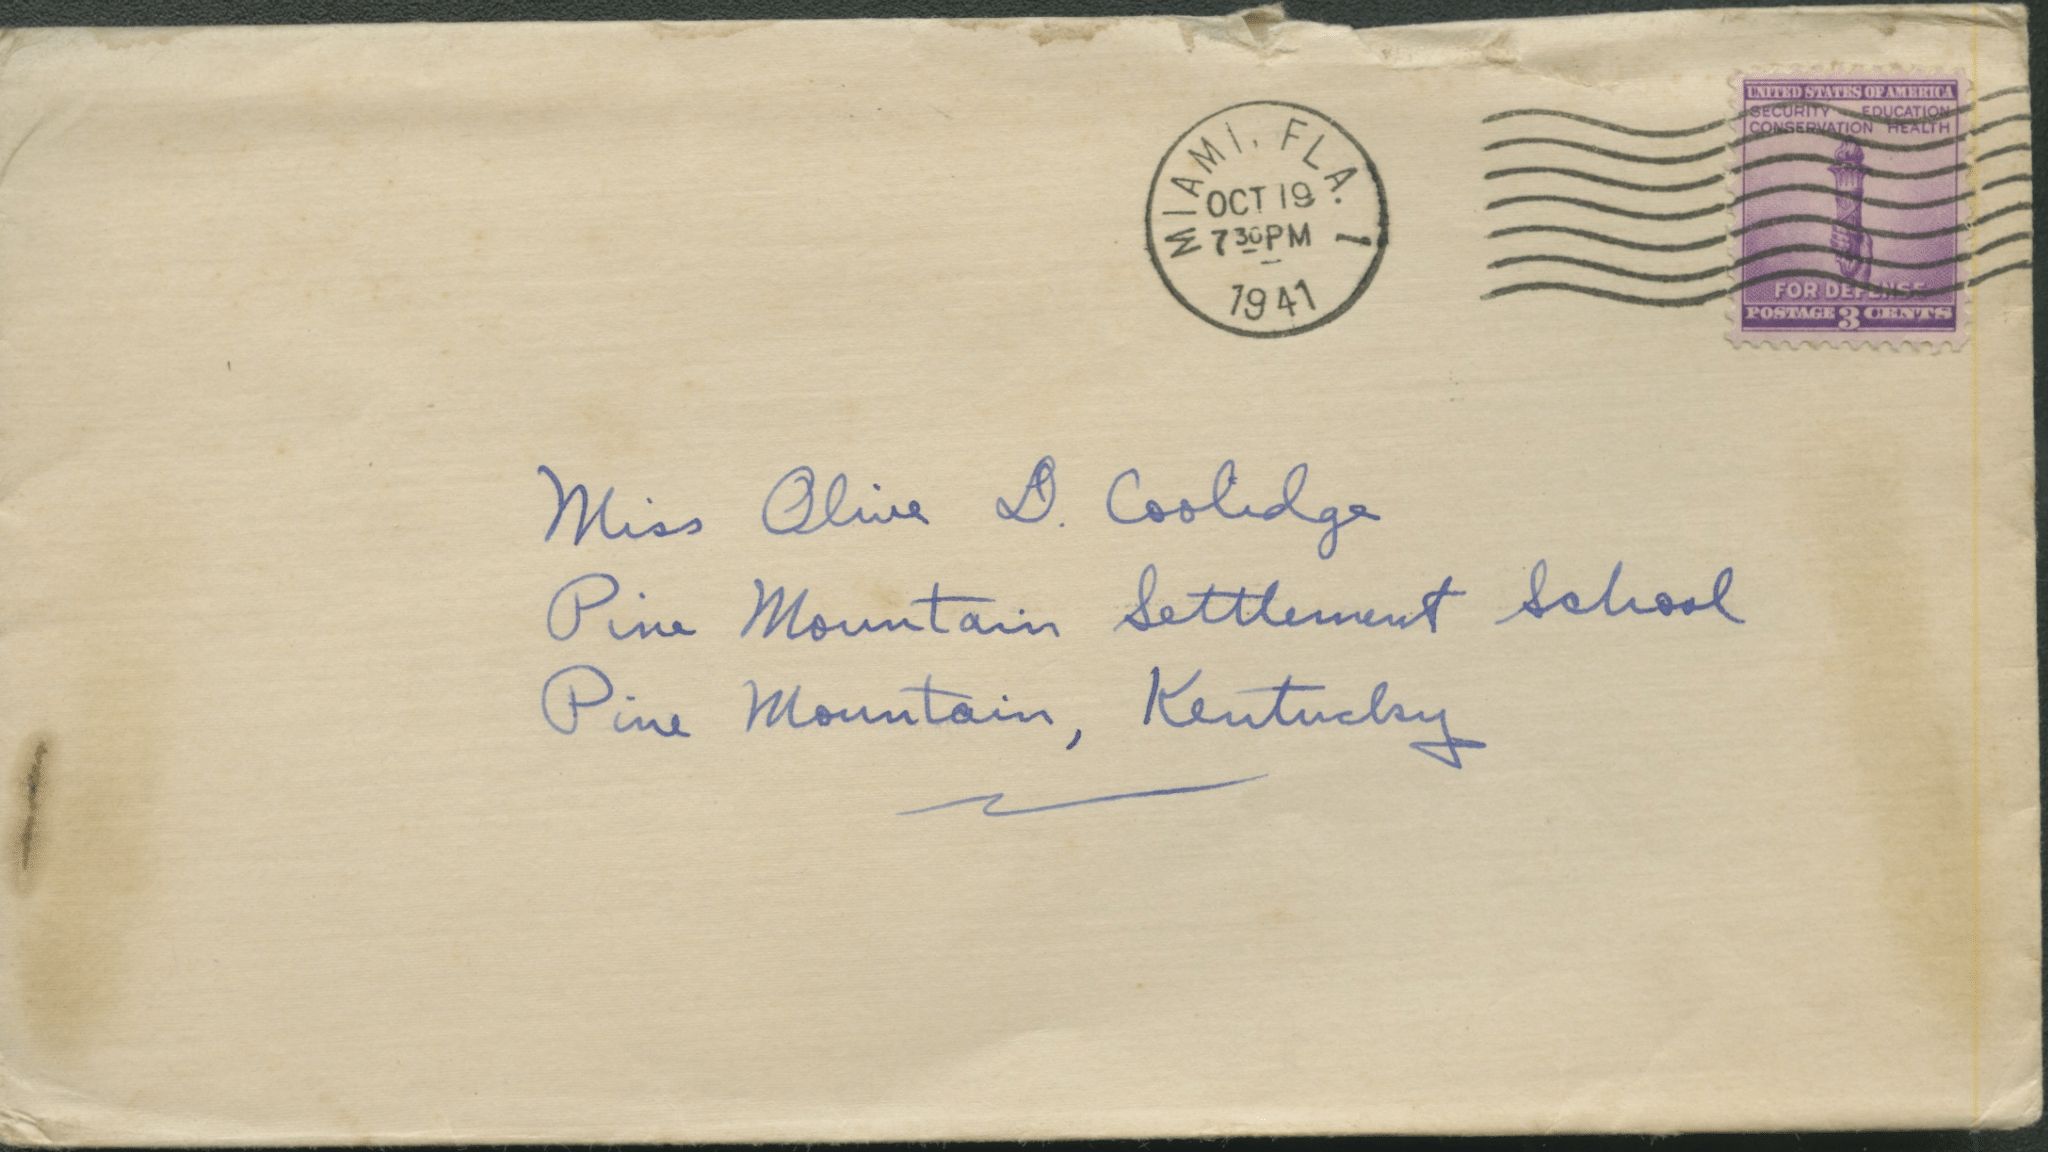 MIAMI, FLA. 1
OCT 19
7 30 PM
1941
UNITED STATES OF AMERICA
SECURITY EDUCATION
CONSERVATION HEALTH
FOR DEFENSE
POSTAGE 3 CENTS
Miss Olive D. Coolidge
Pine Mountain Settlement School
Pine Mountain, Kentucky